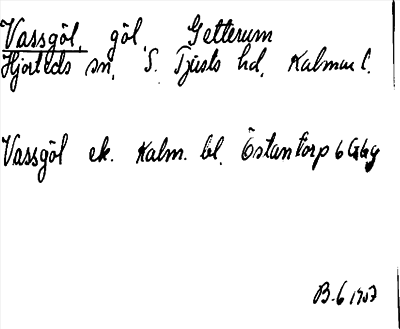 Vassgöl, göl, Getterum
Hjorteds sn, S. Tjusts hd, Kalmar l.
Vassgöl ek. Kalm. bl. Östantorp 6 Gbg
B. 6 1707